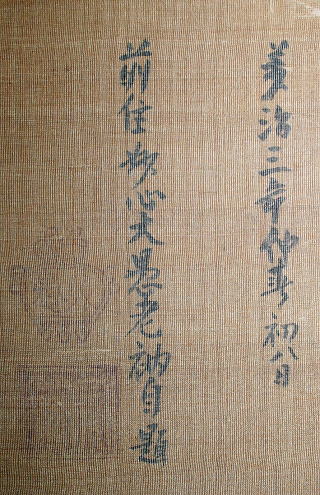 萬治三年仲春初八日
前住妙心大愚老衲自題